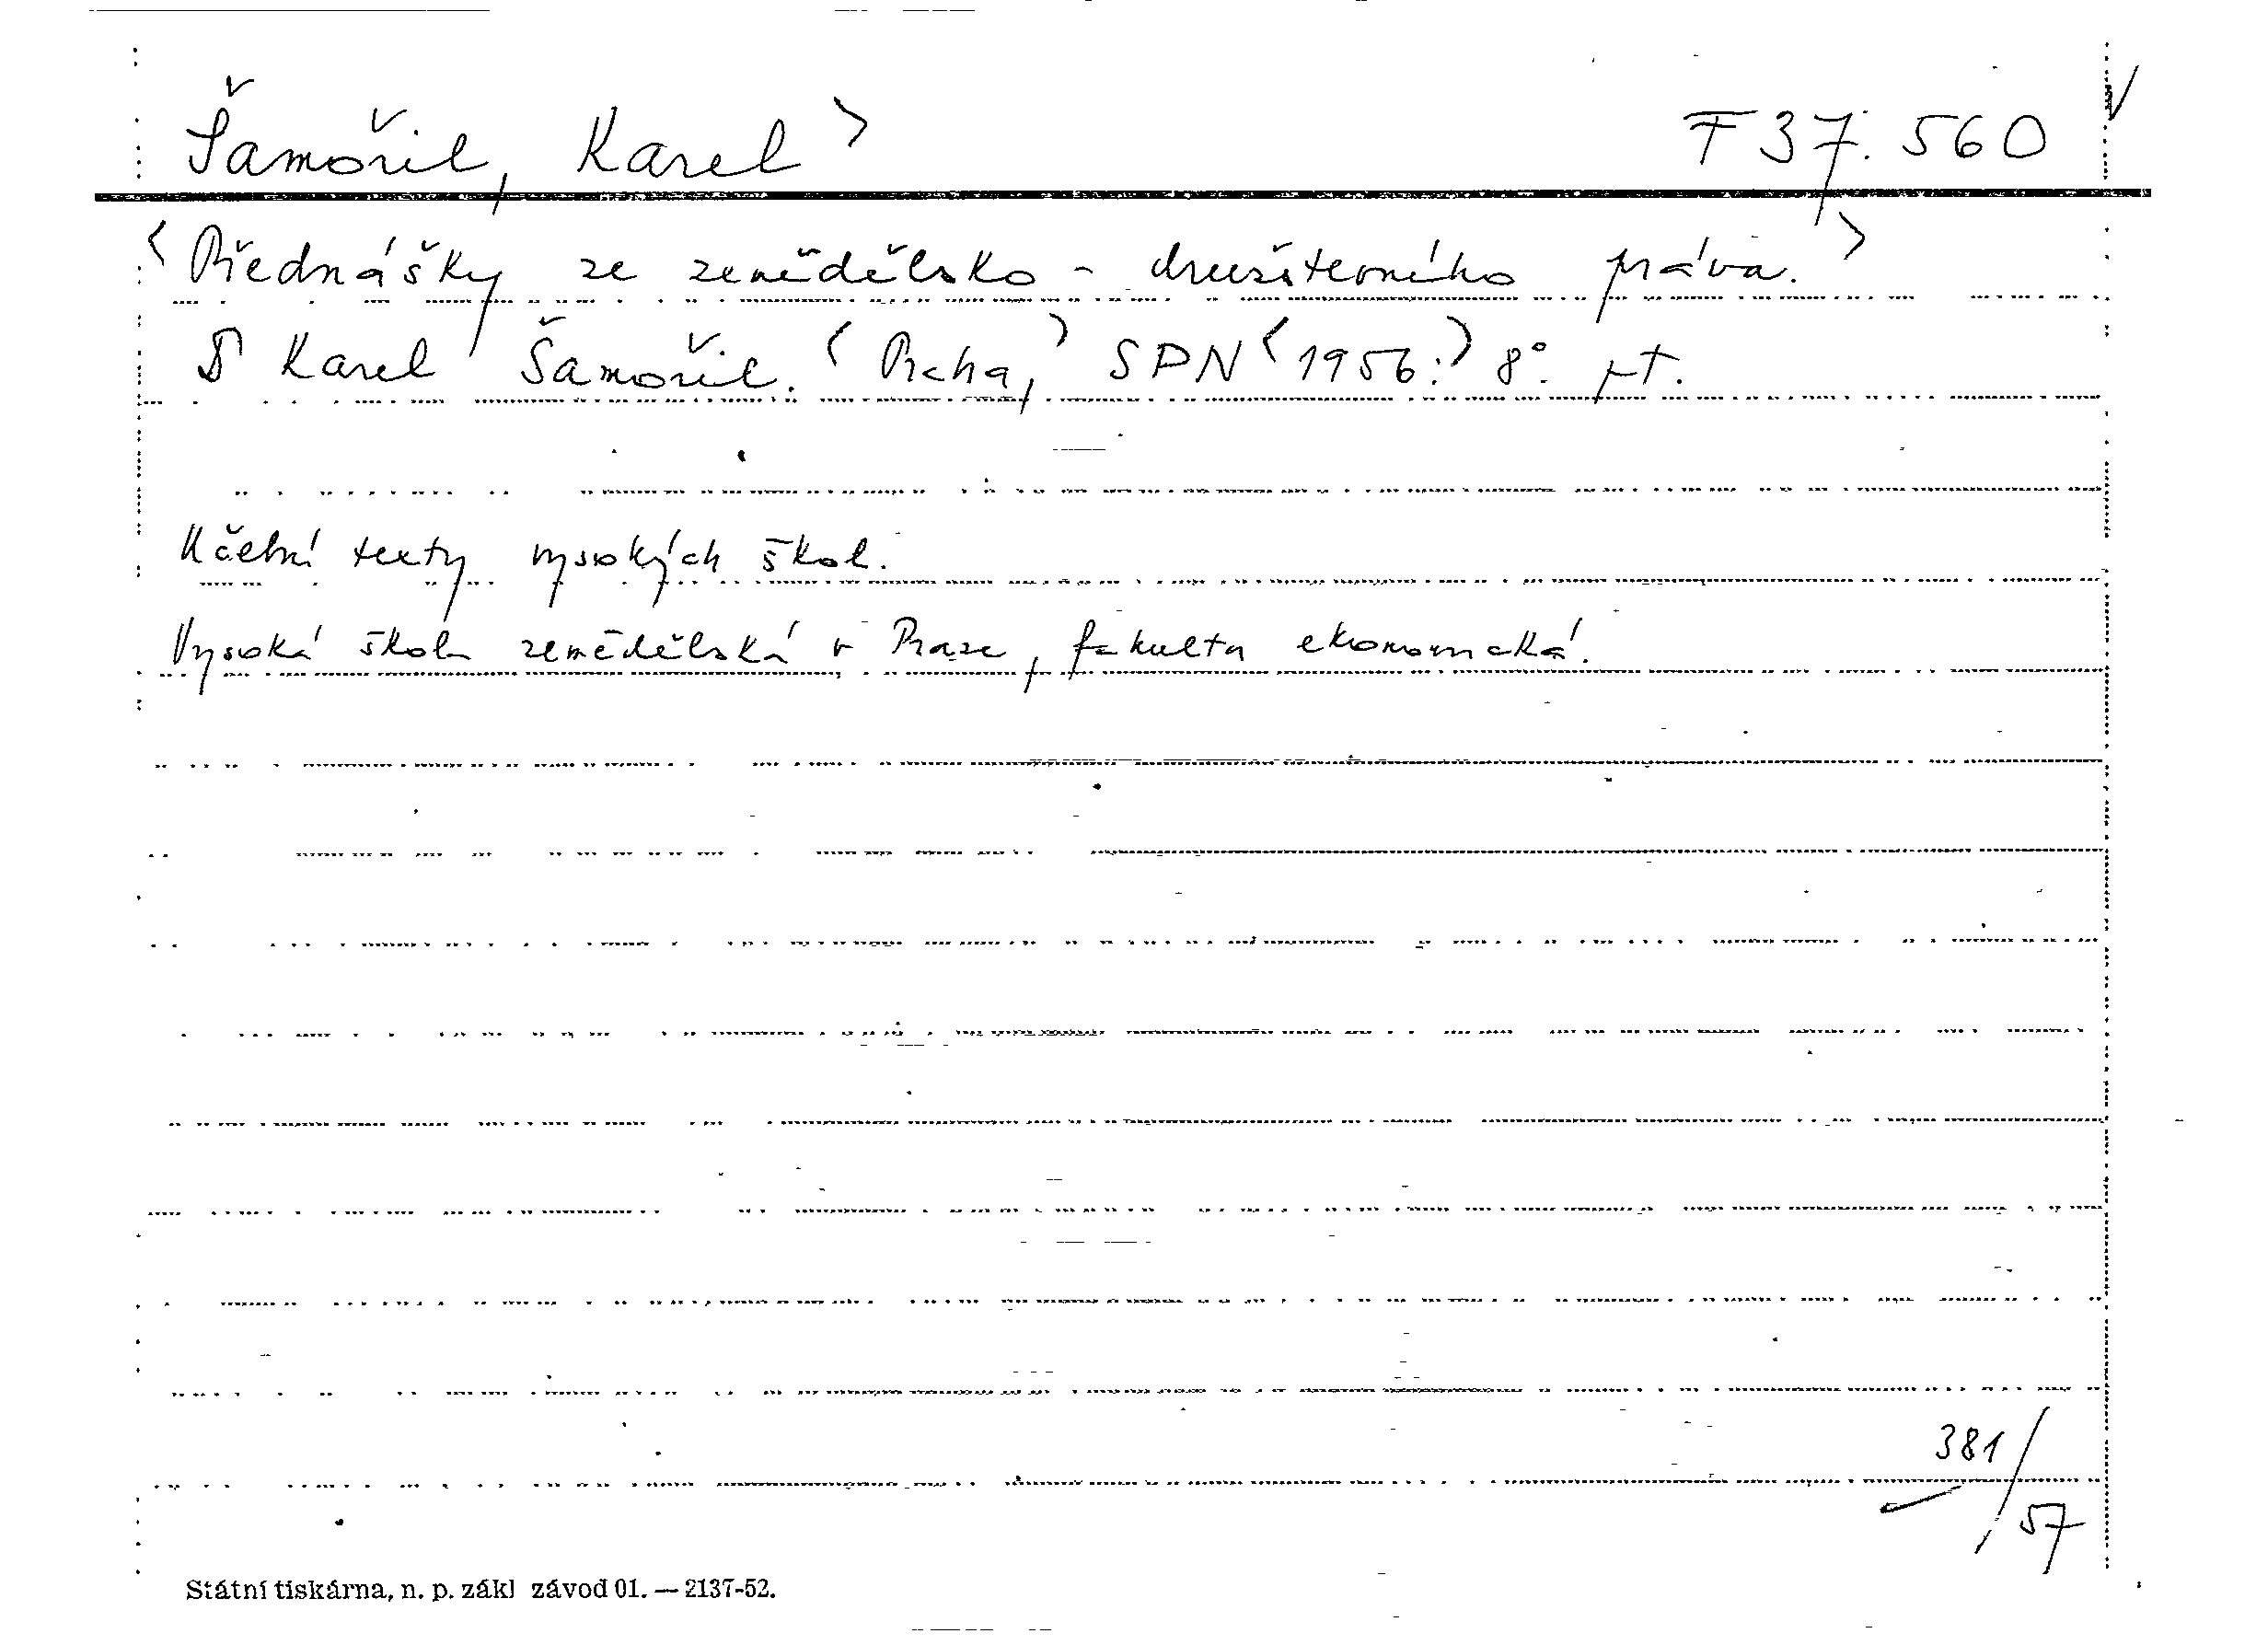 Šamořil, Karel > F 37.560 V
<Přednášky ze zemědělsko - družstevního práva.>
Karel Šamořil. <Praha,> SPN <1956.> 8°.
Učební texty vysokých škol.
Vysoká škola zemědělská v Praze, fakulta ekonomická.
381/57
Státní tiskárna, n. p. zákl závod 01. — 2137-52.